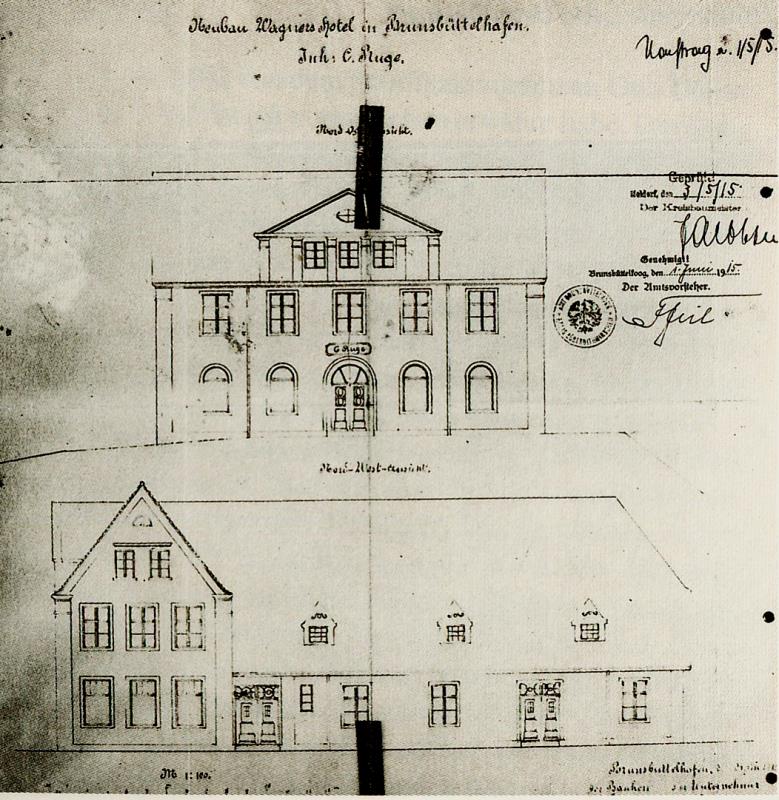 Neubau Wagners Hotel in Brunsbüttelhafen.
Inh: C. Ruge.
1/5/15.
Nord
Geprüft
Meldorf, den 3/5/15
Der Kreisbaumeister
Jacobsen
Genehmigt
Brunsbüttelkoog, den 1. Juni 1915.
Der Amtsvorsteher.
C. Ruge
Nord-West-Ansicht.
M 1:100.
Brunsbüttelhafen,
der Unternehmer